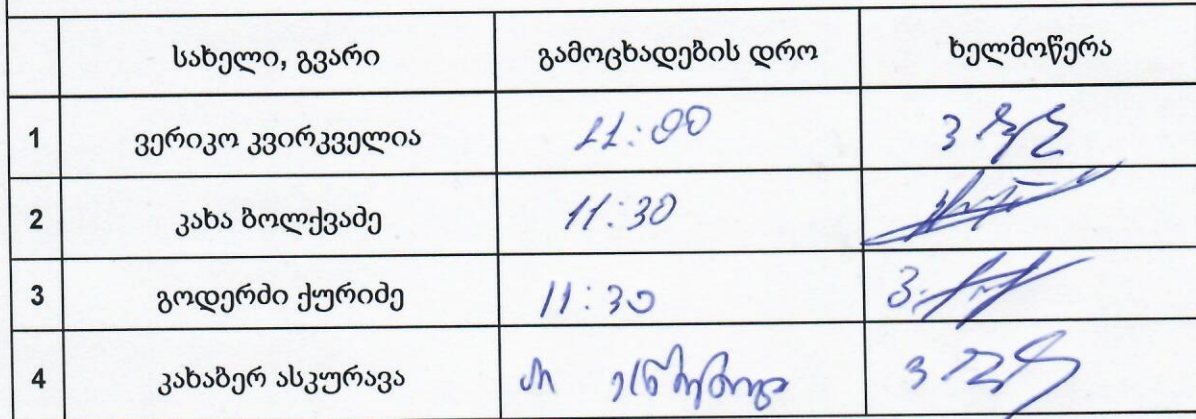 სახელი, გვარი გამოცხადების დრო ხელმოწერა
1 ვერიკო კვირკველია 11:00
2 კახა ბოლქვაძე 11:30
3 გოდერძი ქურიძე 11:30
4 კახაბერ ასკურავა არ